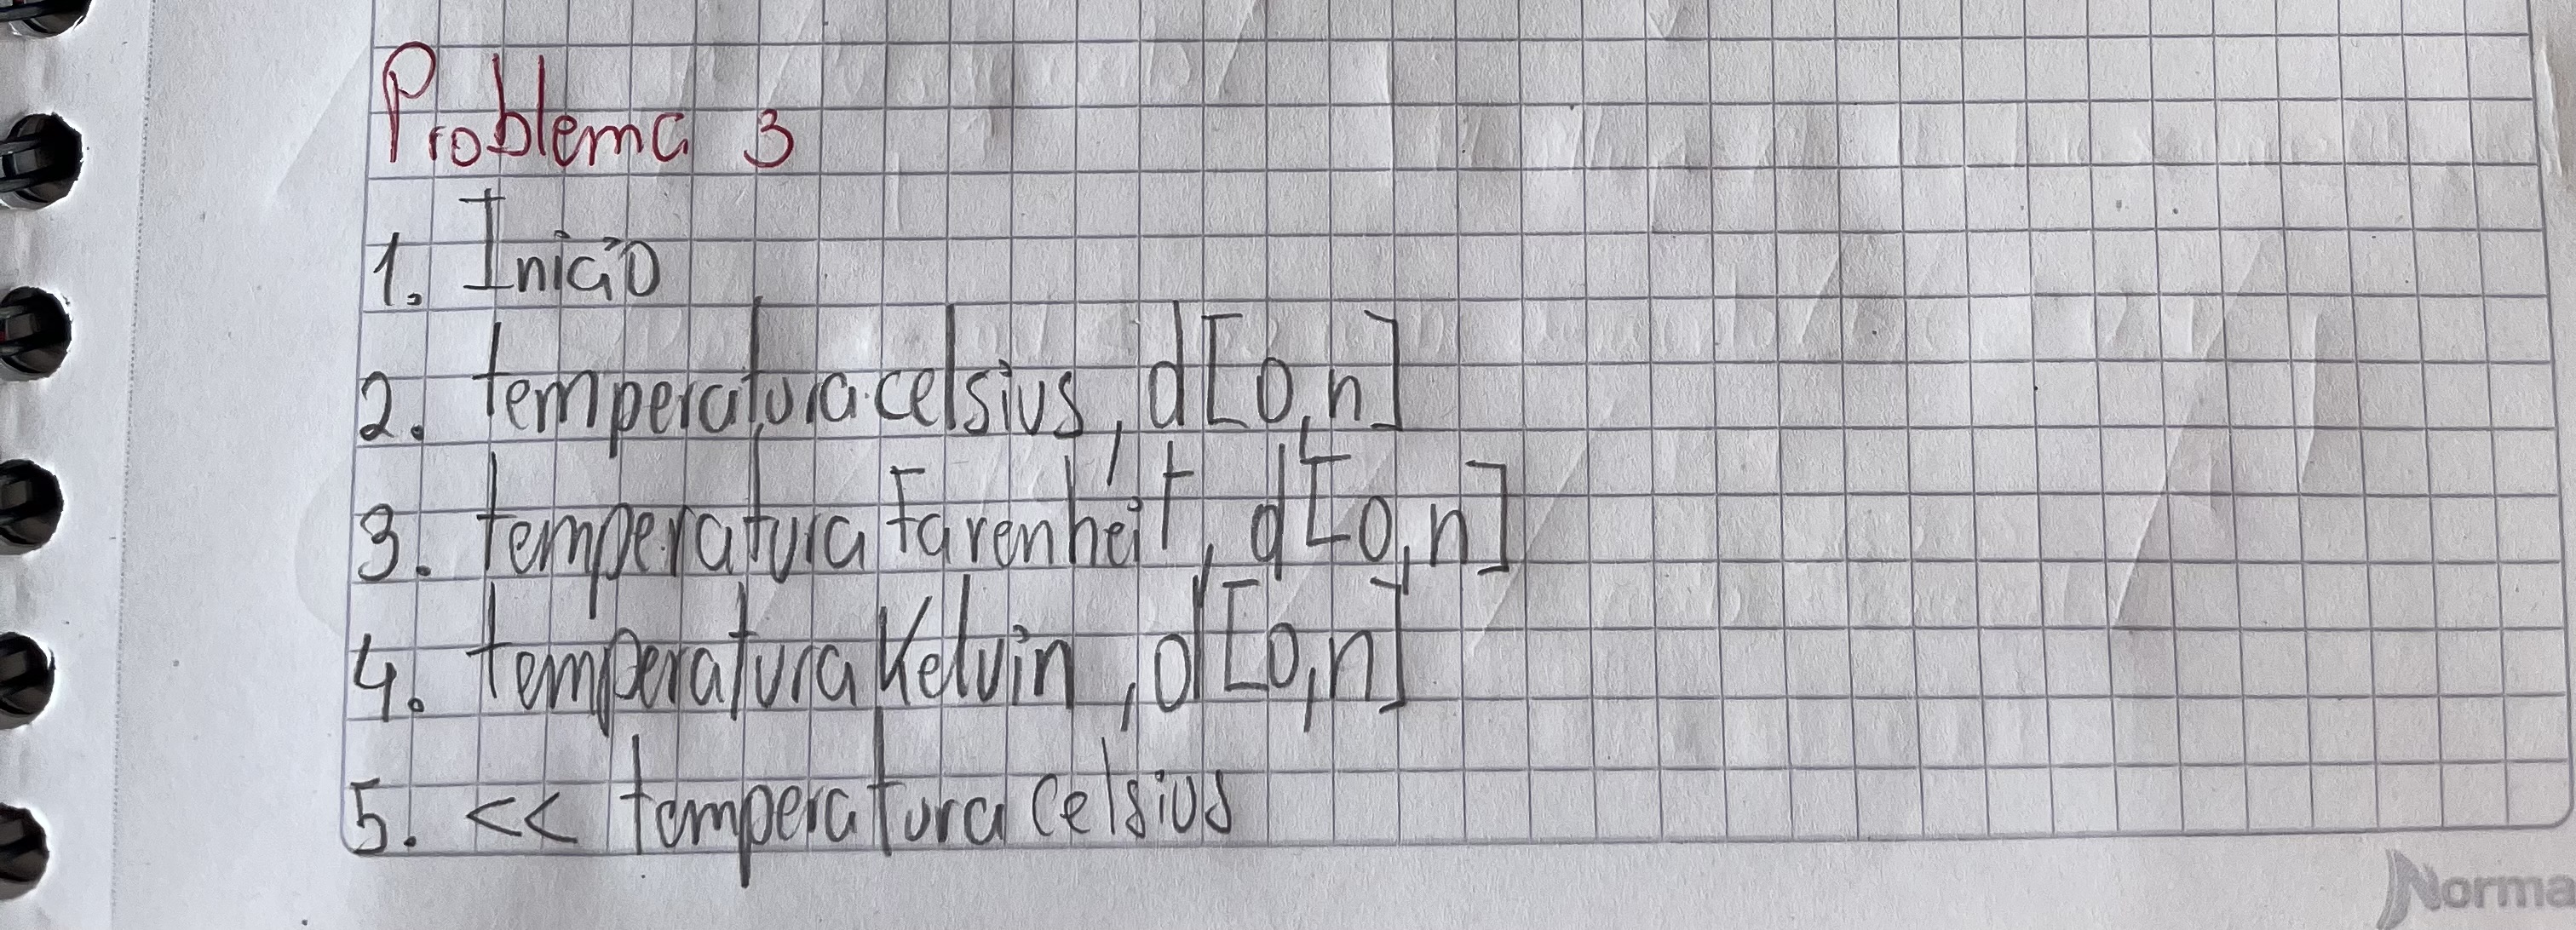 Problema 3
1. Inicio
2. temperatura celsius, d[0,n]
3. temperatura Farenheit, d[0,n]
4. temperatura Kelvin, d[0,n]
5. << temperatura celsius
Norma